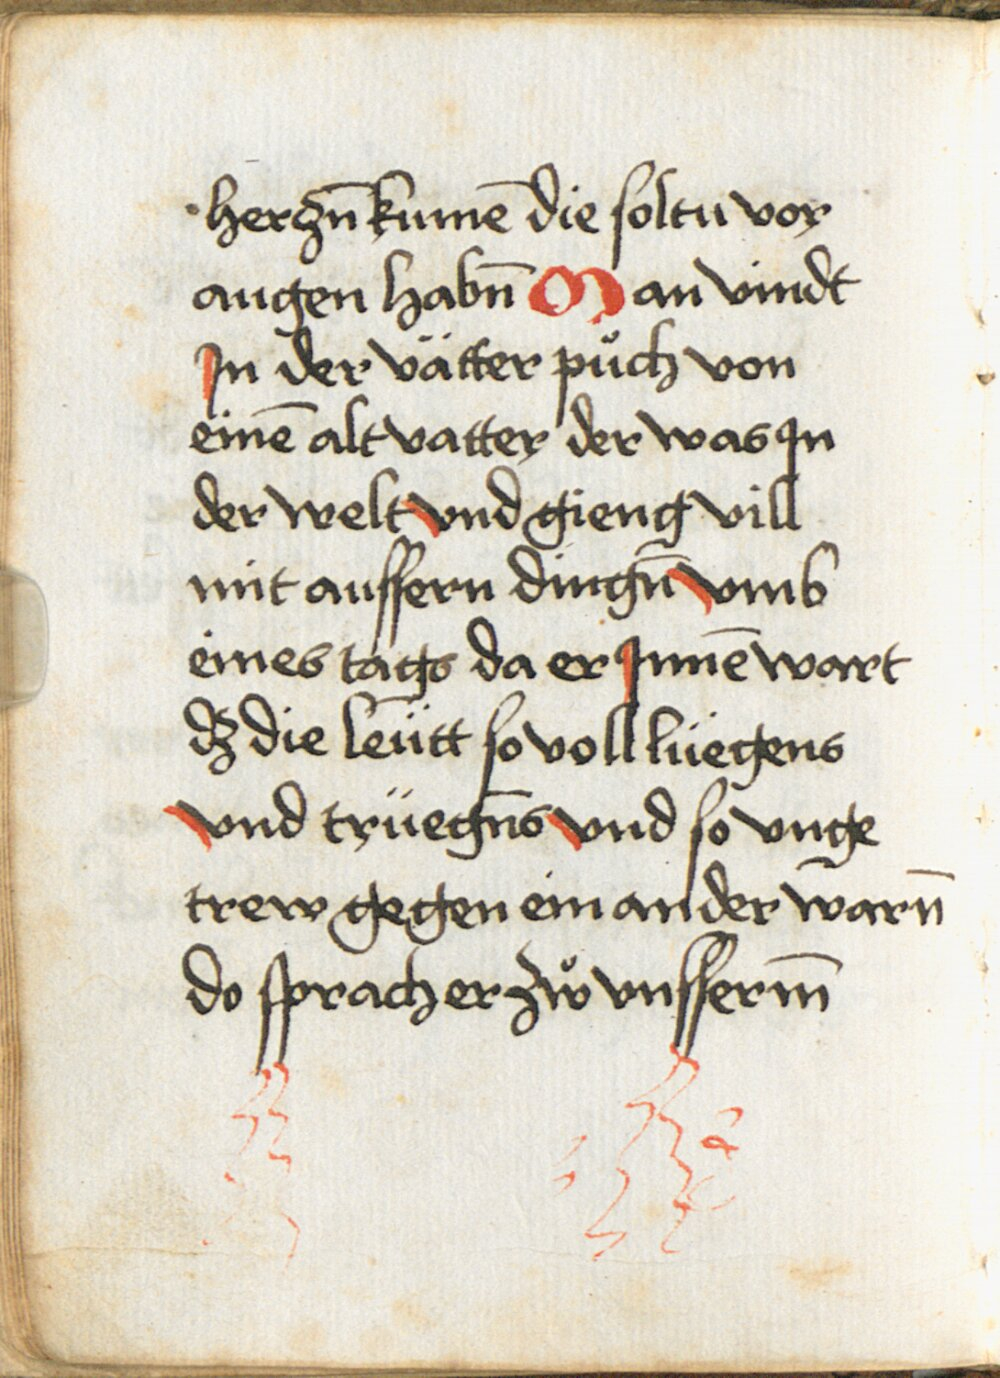 herzn̄ kumē die soltu vor
augen habn̄ Man vindt
In der vätter půch von
einē alt vatter der was In
der welt vnd gieng vill
mit aussern dingn̄ vmb
eines tags da er Innnē wart
dʒ die leütt so voll lüegens
vnd trüegn̄s vnd so vnge
trew gegen ein ander warn̄
do sprach er zů vnsserm̄